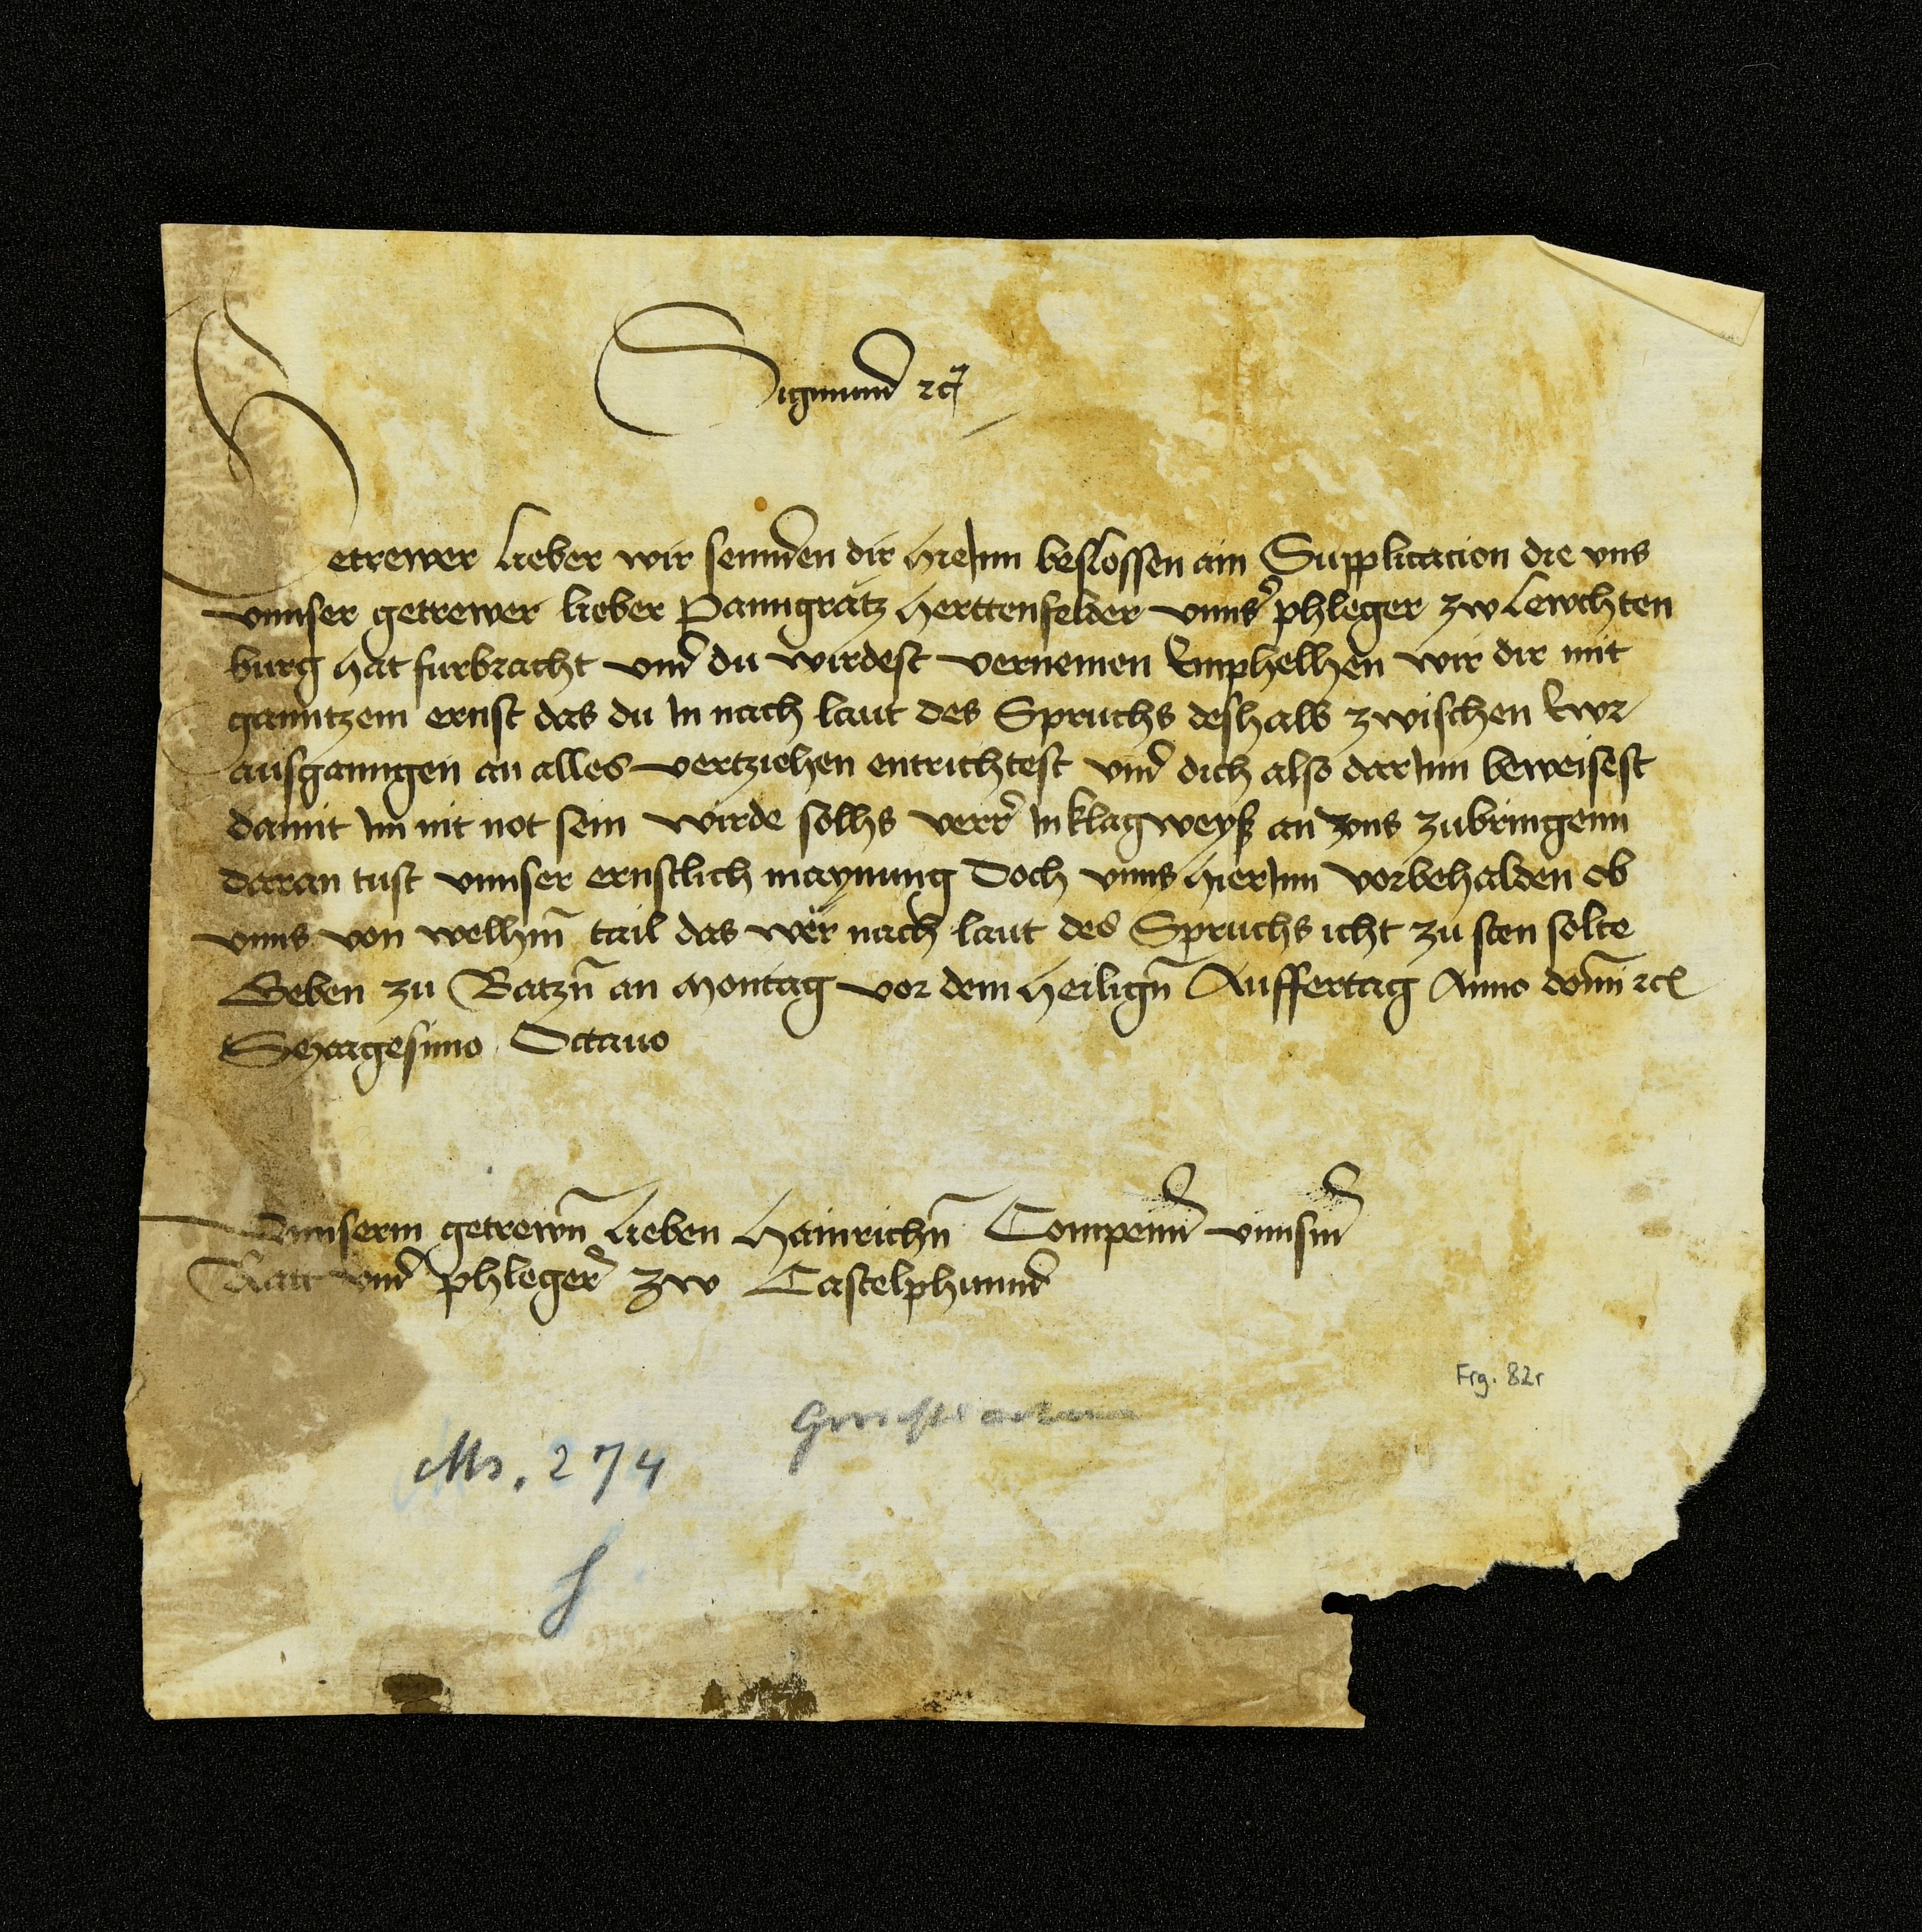 Sigmund etc
Getrewer Lieber wir sennden dir hieInn beslossen ain Supplicacion die vns
vnnser getrewer lieber Panngratz Herttenfelder vnns' phleger zw Lewchten
burg hat furbracht vnd du wirdest vernemen Emphelhen wir dir mit
ganntzem ernst das du In nach laut des Spruchs deshalb zwischen Ewr
ausganngen an alles vertziehen entrichtest vnd dich also darInn beweisest
damit Im nit not sein wirde solhs verr' In klagweyß an vns zubringenn
daran tust vnnser ernstlich maynung Doch vnns hierInn vorbehalden ob
vnns von welhm̄ tail das wër nach laut des Spruchs icht zu sten solte
Geben zu Batzn̄ an Montag vor dem heilign̄ Auffertag Anno dom̄ etc
Sexagesimo Octauo
Vnnserm getrewn̄ Lieben Hainrichn̄ Compennd' vnnserm
Ratt vnd phleger' zw Castelphunnd
Frg. 82r
Ms. 274